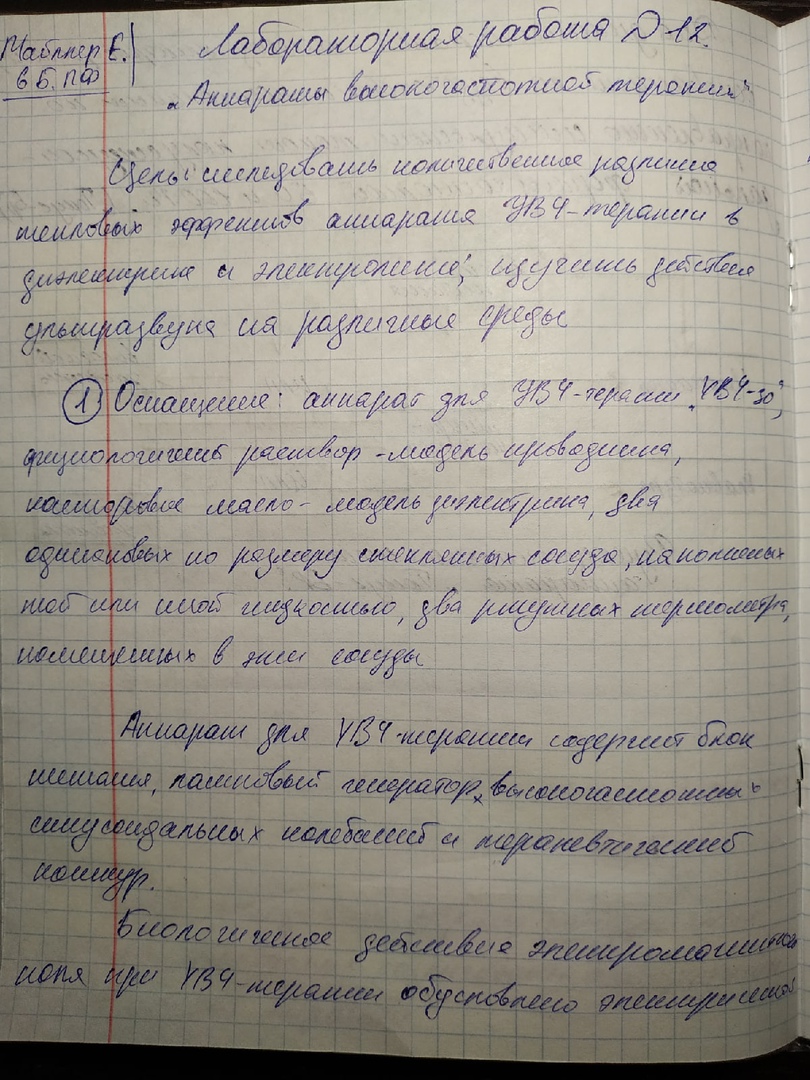 Е.
6 Б. ПФ
Лабораторная работа №12.
„Аппараты высокочастотной терапии"
Цель: исследовать количественное различие
тепловых эффектов аппарата УВЧ-терапии в
диэлектрике и электролите; изучить действие
ультразвука на различные среды
① Оснащение: аппарат для УВЧ-терапии „УВЧ-30",
физиологический раствор - модель проводника,
касторовое масло - модель диэлектрика, два
одинаковых по размеру стеклянных сосуда, наполненых
той или иной жидкостью, два ртутных термометра,
помещенных в эти сосуды
Аппарат для УВЧ-терапии содержит блок
питания, ламповый генератор высокочастотных
синусоидальных колебаний и терапевтический
контур.
Биологическое действие электромагнитного
поля при УВЧ-терапии обусловлено электрической